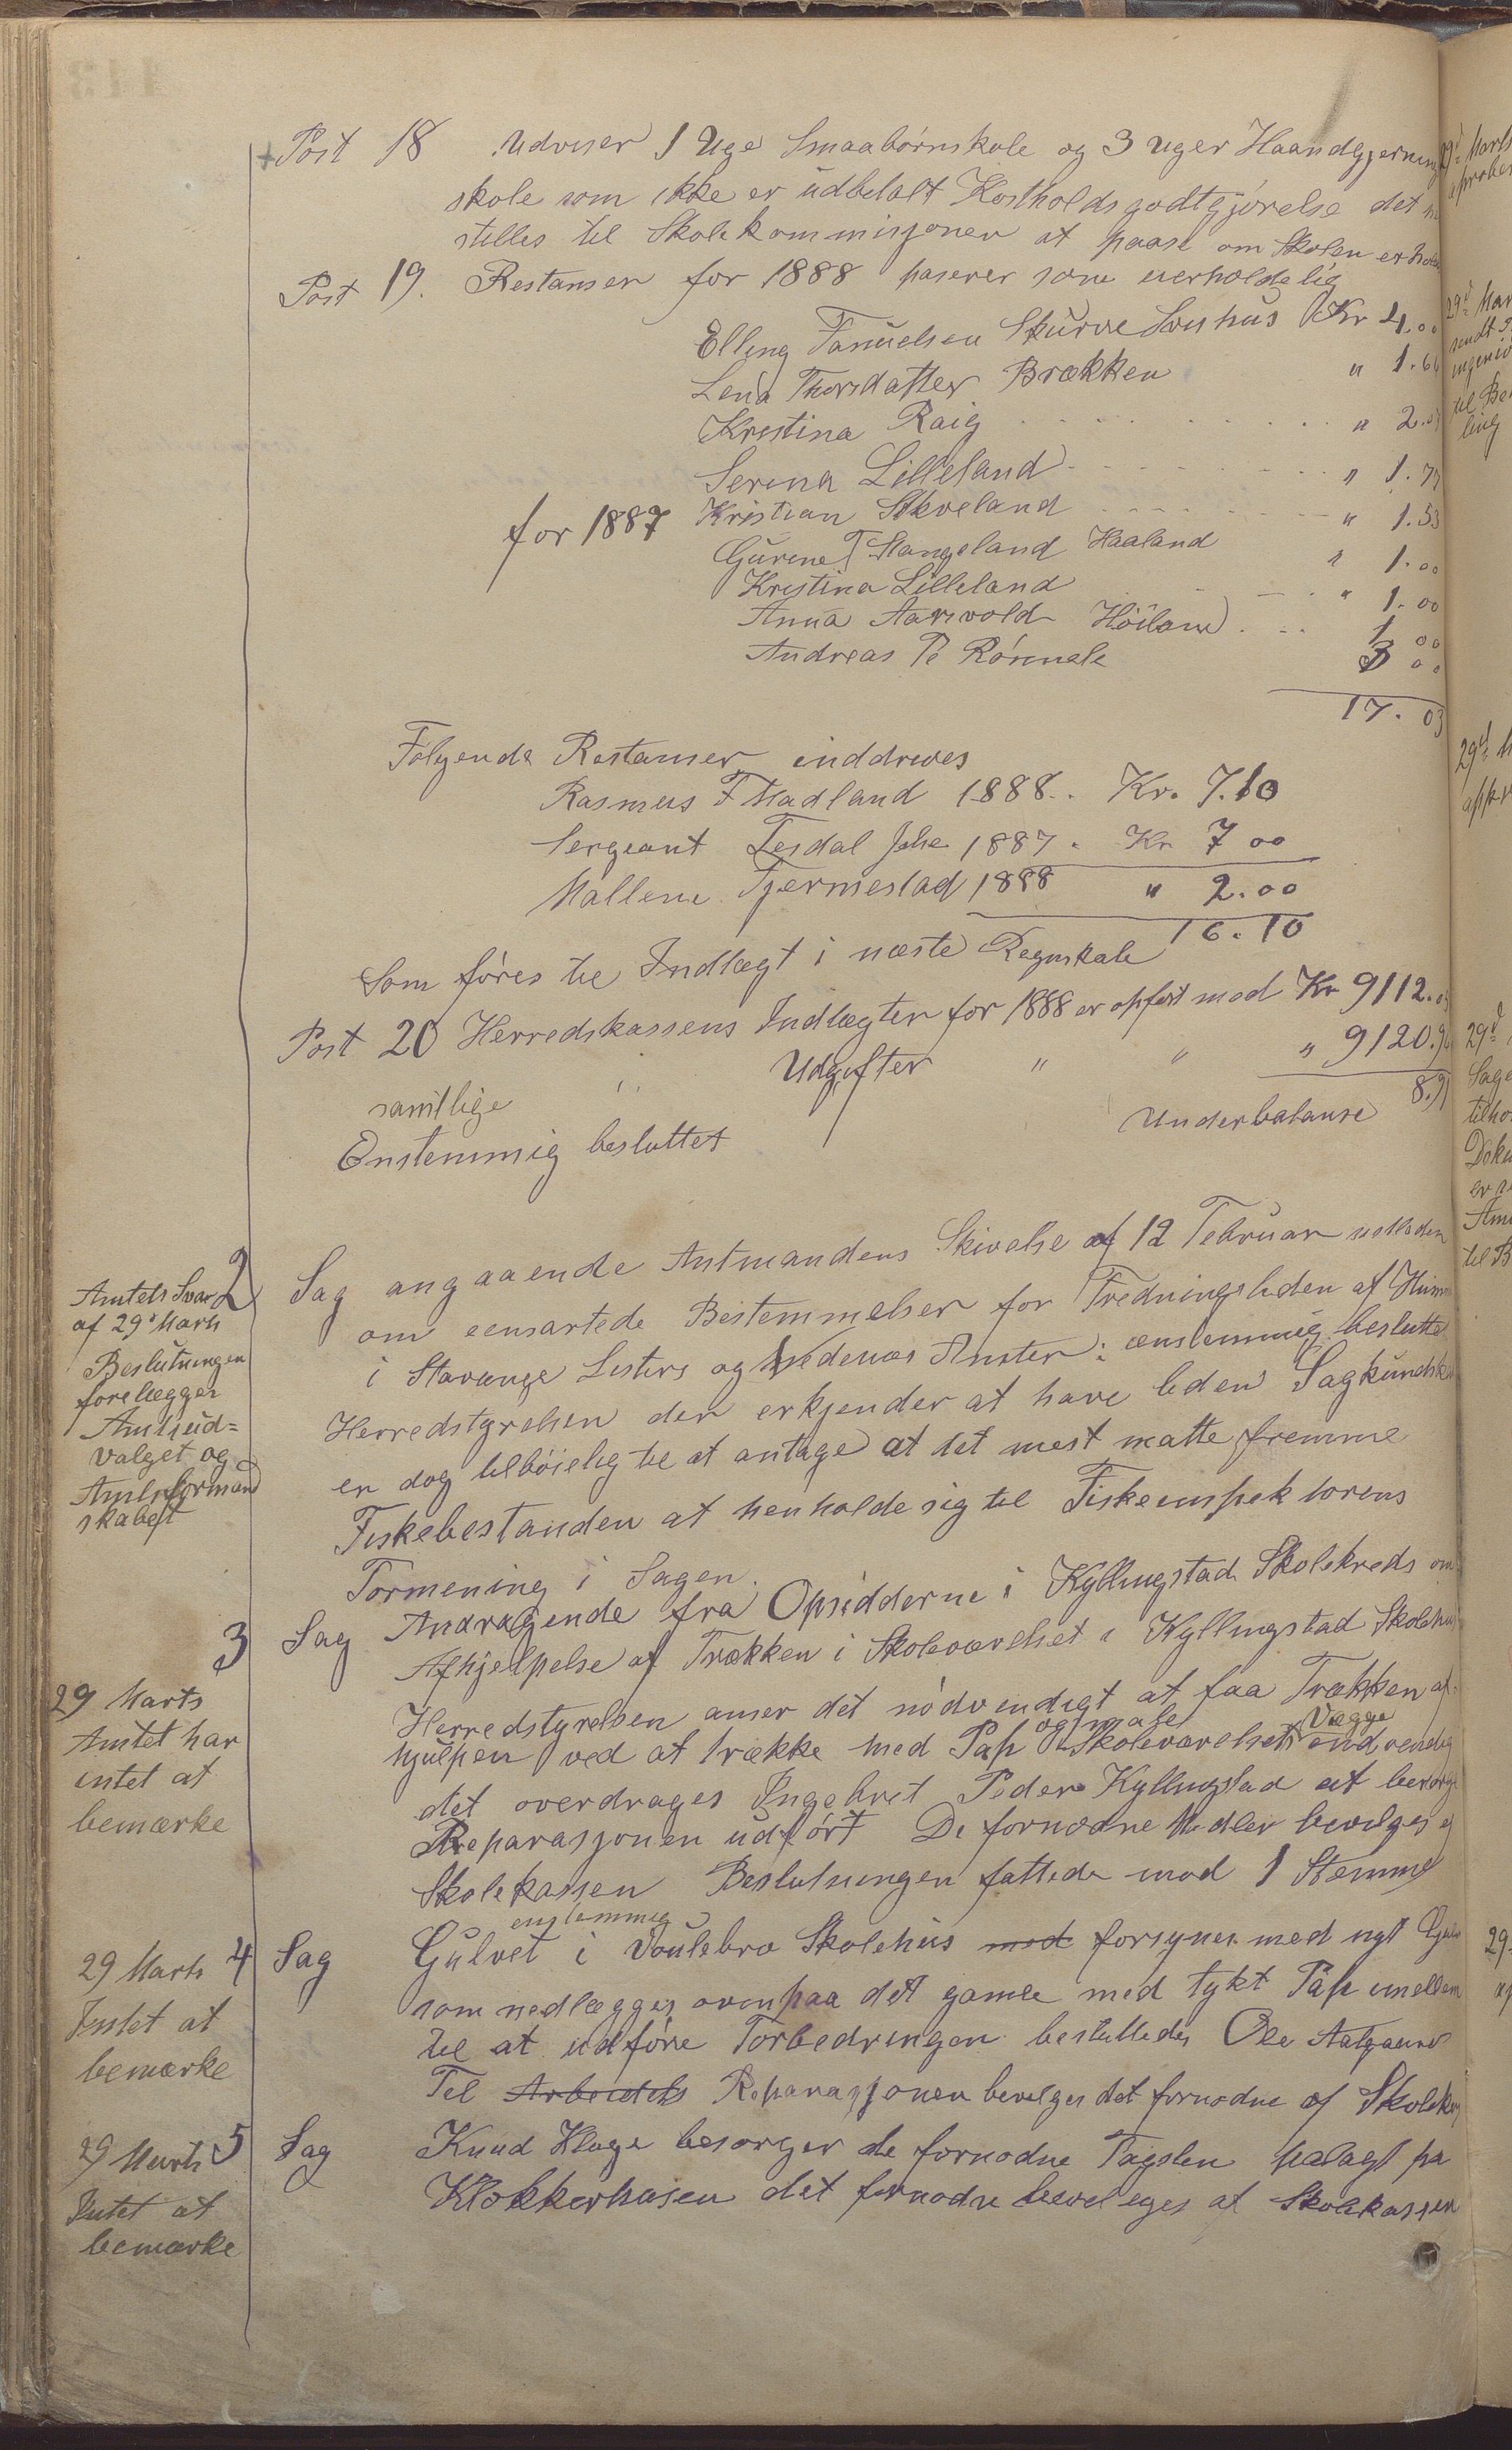 Post 18 Udviser 1 Uge Smaabørnskole og 3 Uger Haandgjernings
skole som ikke er udbetalt Kostholdsgodtgjørelse det
stilles til Skolekommisjonen at paase om Skolen er
Post 19. Restanser for 1888 paserer som uerholdelig
Elling Tanuelsen Skurve Kr 4.00
Lena Thorsdatter Brækken " 1.66
Kristina Raig " 2.
Serina Lilleland " 1.
for 1887 Kristian Skveland " 1.53
Gurine T Stangeland Haaland " 1.00
Kristina Lilleland " 1.00
Anna Aarsvold Höiland 1 00
Andreas P 3 00
17.03
Følgende Restanser inddrives
Rasmus F Madland 1888. Kr. 7.10
Sergeant Tesdal 1887. Kr 7 00
Mallene Tjærmestad 1888 " 2.00
16.10
Som føres til Indtægt i næste Regnskab
Post 20 Herredskassens Indtægter for 1888 er opført med Kr 9112.
Udgifter " " " 9120.
8.
samtlige Underbalanse
Enstemmig besluttet
2 Sag angaaende Amtmandens Skivelse af 12 Februar
om eensartede Bestemmelser for Fredningstiden af
i Stavange Listers og Nedenæs Amter: ænstemmig beslutte
Herredstyrelsen der erkjender at have liden Sagkundska
er dog tilbøielig til at antage at det mest maatte fremme
Fiskebestanden at henholde sig til Fiskeinspektorens
Formening i Sagen.
Amtets Svar
af 29d Marts
Beslutningen
forelægger
Amtsud=
valget og
Amtsformand
skabet
3 Sag Andragende fra Opsidderne i Kyllingstad Skolekreds om
Afhjelpelse af Trækken i Skoleværelset i Kyllingstad Skolehus
Herredstyrelsen anser det nödvendigt at faa Trækken af
hjulpen ved at trække med Pap og male Skoleværelsets Vægge indvendig
det overdrages Ingebret Peder Kyllingstad at besörge
Reparasjonen udført De fornødne Midler bevilges af
Skolekassen Beslutningen fattede mod 1 Stemme
29 Marts
Amtet har
intet at
bemærke
4 Sag Gulvet i Voulebro Skolehus med enstemmig forsynes med nyt Gulv
som nedlægges ovenpaa det gamle med tykt Pap imellem
til at udføre Forbedringen besluttedes Ole Aalgaard
Til Arbeidets Reparasjonen bevilges det fornødne af Skolekas
29 Marts
Intet at
bemærke
5 Sag Knud Kluge besørger de fornødne Tagsten pålagt pa
Klokkerhusen det fornødne bevilges af Skolekassen
29 Marts
Intet at
bemærke